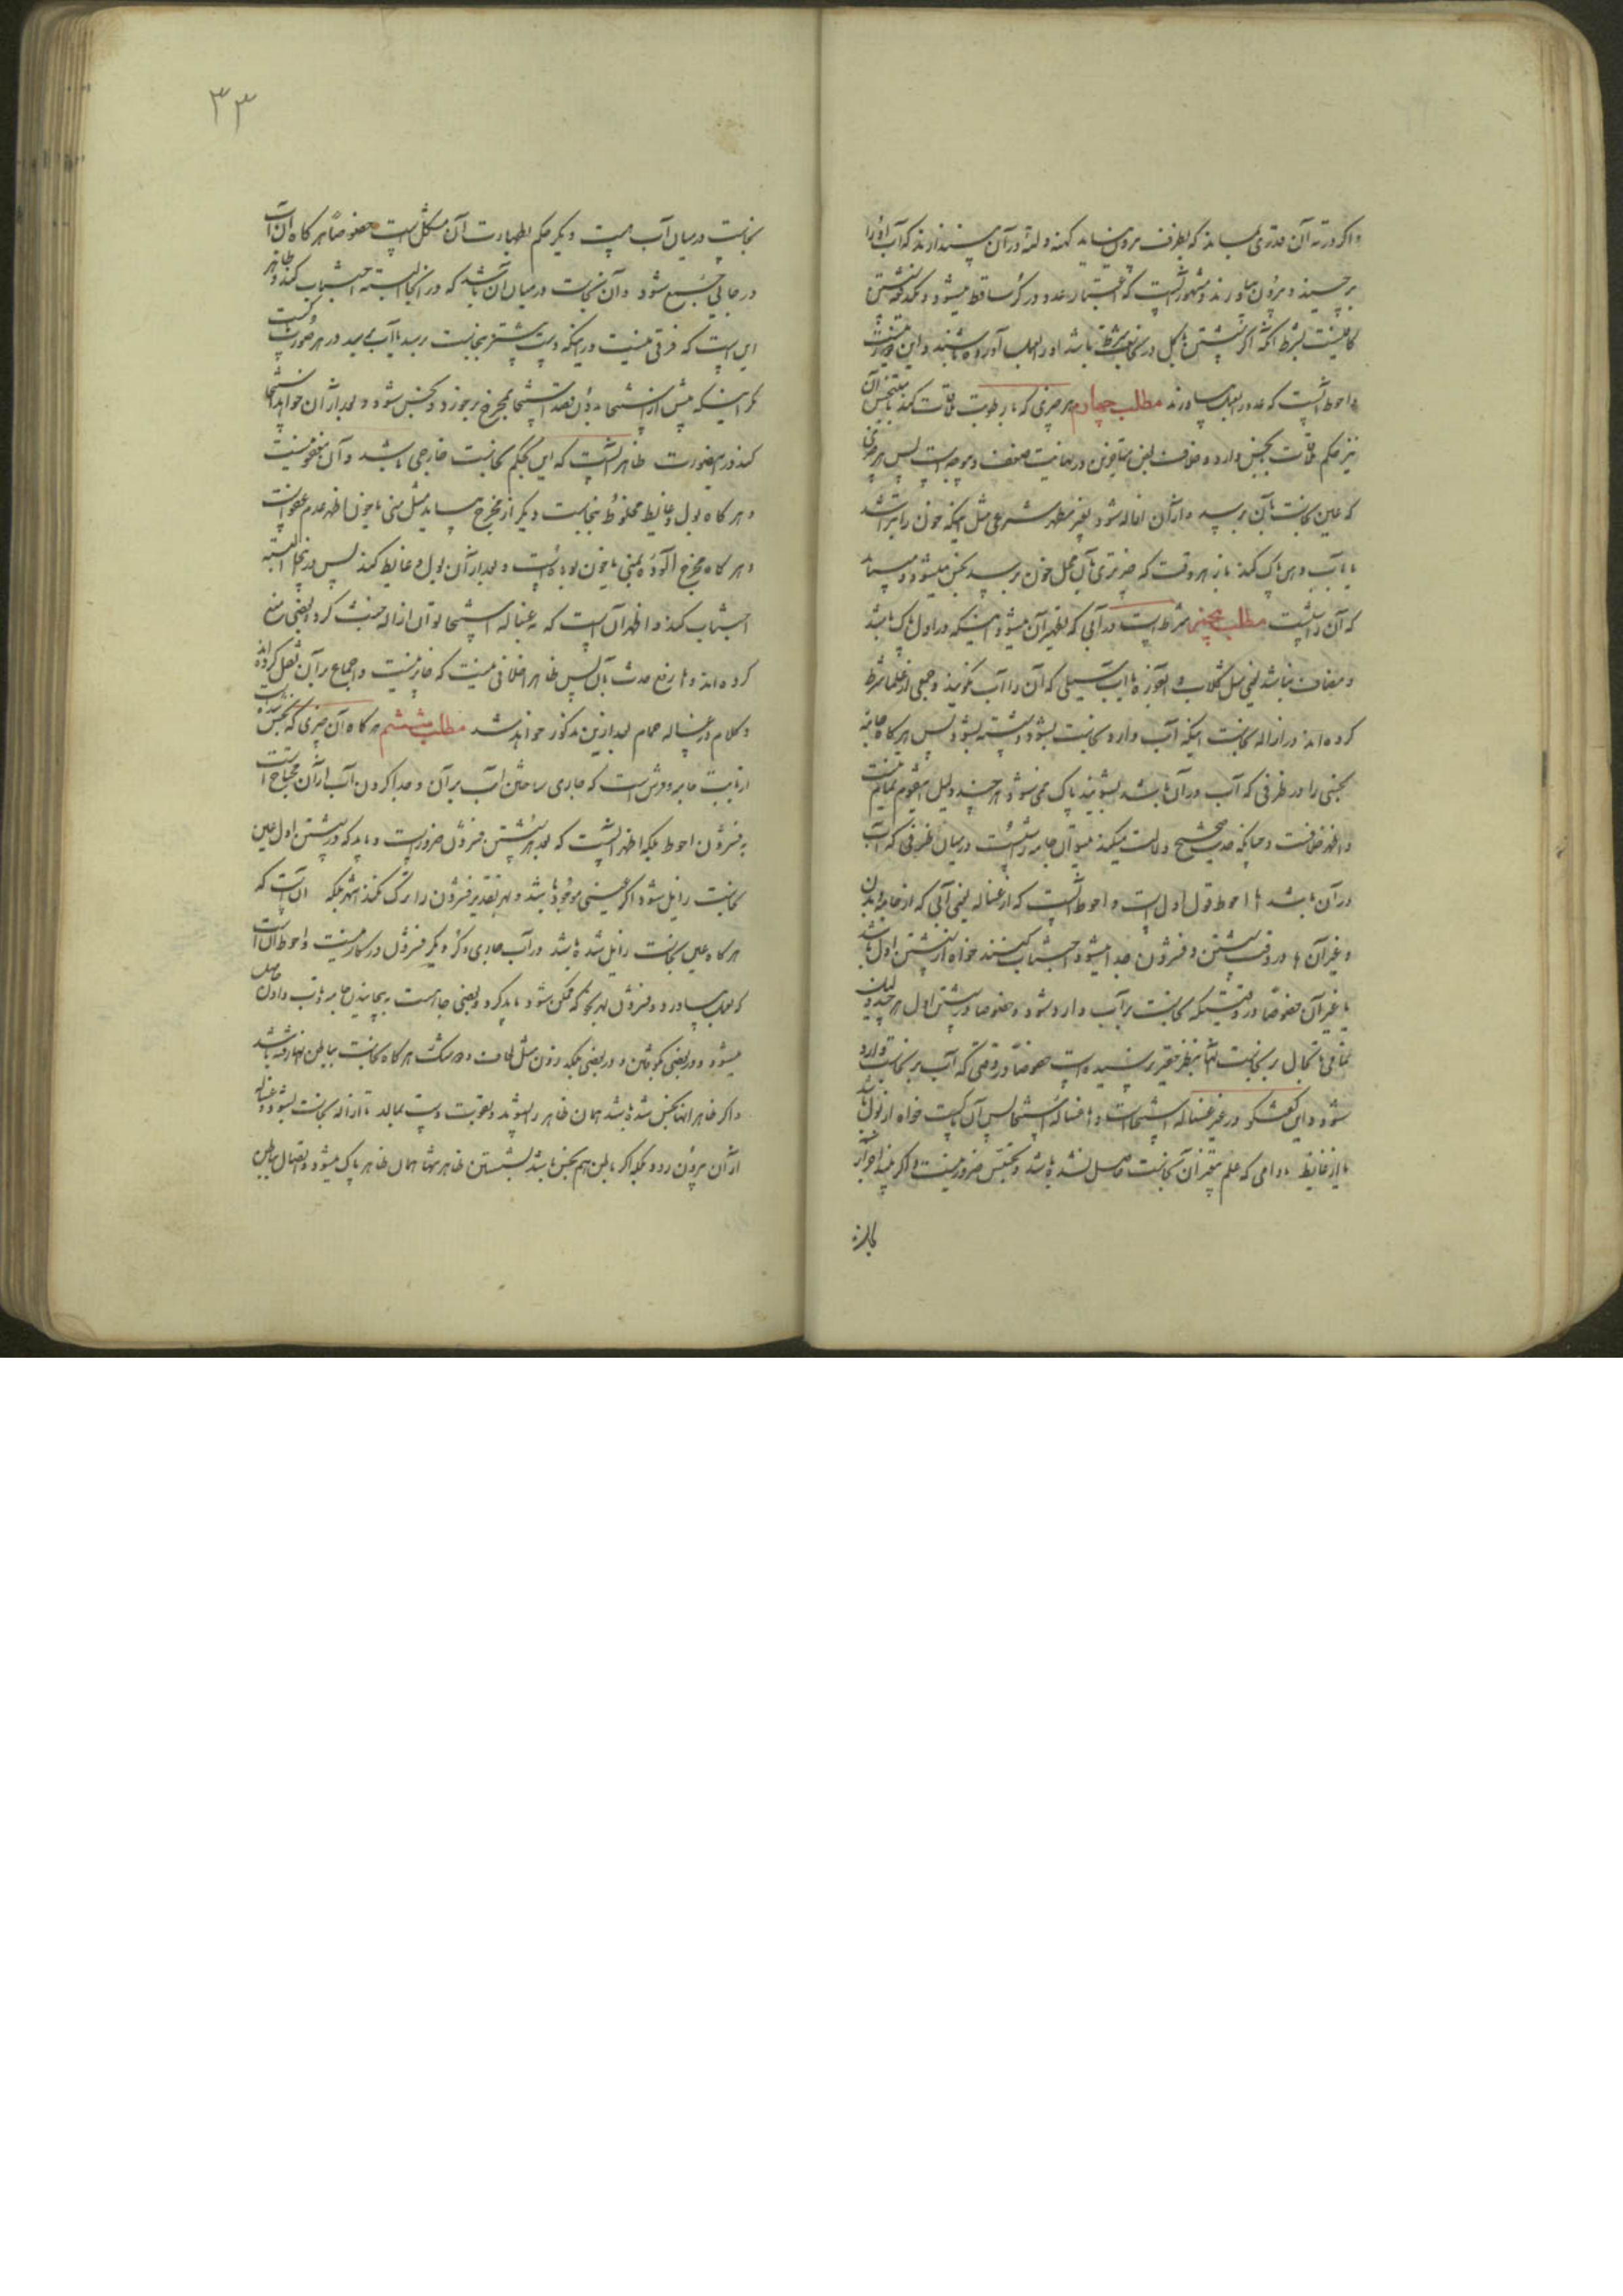 و اگر در ته آن قدری بماند که بظرف بیرون نیاید کهنه و لته در آن میندازند که آب آنرا
برچیند و بیرون بیاورند و مشهور آنست که اعتبار عدد در کر ساقط میشود و یکدفعه شستن
کافیست بشرط آنکه اگر شستن باکل در باشد اورا بعمل آورده باشند و این
و احوط آنست که عدد را بعمل بیاورند مطلب چهارم هر چیزی که با رطوبت ملاقات کند با متنجس آن
نیز حکم ملاقات نجس دارد و خلاف بعض متأخرین در نهایت ضعف و بیوجه است پس هر چیزی
که عین نجاست بآن برسد و از آن ازاله شود بغیر مطهر شرعی مثل اینکه خون را بتراشند
یا بآب دهن پاک کند باز هر وقت که چیز تری بآن محل خون برسد نجس میشود و میباید
که آنرا شست مطلب پنجم شرط است در آبی که تطهیر آن میشود اینکه در اول پاک باشد
و مضاف نباشد یعنی مثل گلاب و آبغوره یا آب سیبی که آن را آب گویند و جمعی از علما شرط
کرده‌اند در ازاله نجاست اینکه آب وارد نجاست بشود و شسته بشود پس هرگاه جامه
نجسی را در ظرفی که آب در آن باشد بشویند پاک نمی‌شود هر چند دلیل
و اظهر خلافست و چنانکه حدیث صحیح دلالت میکند میتوان جامه را شست در میان ظرفی که آب
در آن باشد اما احوط قول اول است و احوط آنست که از غساله یعنی آبی که از جامه و بدن
و غیر آن‌ها در وقت شستن و فشردن جدا میشود اجتناب کنند خواه از شستن اول باشد
یا غیر آن خصوصاً در وقتیکه نجاست بر آب وارد شود و خصوصاً در شستن اول هر چند دلیلی
تمامی تا بحال بر نجاست آنها بنظر حقیر نرسیده است خصوصاً در وقتی که آب بر نجاست وارد
شود و این گفتگو در غیر غساله استنجاست و اما غساله استنجا پس آن پاکست خواه از بول باشد
یا از غایط مادامی که علم بتغیر آن نجاست حاصل نشده باشد و تجسس ضرور نیست و اگر ببیند اجزای
نجاست
۳۳
نجاست در میان آب هست دیگر حکم بطهارت آن مشکل است خصوصاً هرگاه آن آب
در جائی جمع شود و آن نجاست در میان آن باشد که در اینجا البته اجتناب کند و ظاهر
این است که فرقی نیست در اینکه دست پیشتر بنجاست برسد یا آب برسد در هر صورت پاکست
مگر اینکه پیش از استنجا بدون قصد استنجا بمخرج بخورد و نجس شود و بعد از آن خواهد استنجا
کند در اینصورت ظاهر آنست که این بحکم نجاست خارجی باشد و آن معفو نیست
و هرگاه بول و غایط مخلوط بنجاست دیگر از مخرج بیاید مثل منی یا خون اظهر عدم عفو است
و هرگاه مخرج آلوده بمنی یا خون بوده است و بعد از آن بول و غایط کند پس در اینحال البته
اجتناب کند و اظهر آن است که به غساله استنجا توان ازاله خبث کرد و بعضی منع
کرده‌اند و اما رفع حدث بآن پس ظاهراً خلافی نیست که جایز نیست و اجماع بر آن نقل کرده‌اند
و کلام در غساله حمام بعد ازین مذکور خواهد شد مطلب ششم هرگاه آن چیزی که نجس شده
از بابت جامه و فرش است که جاری ساختن آب بر آن و جدا کردن آب از آن محتاج است
به فشردن احوط بلکه اظهر آنست که بعد هر شستن فشردن ضرور است و باید که در شستن اول عین
نجاست زایل شود اگر عینی موجود باشد و بهر تقدیر فشردن را ترک نکند اشهر بلکه آن است که
هرگاه عین نجاست زایل شده باشد در آب جاری و کر دیگر فشردن در کار نیست و احوط آن است
که بعمل بیاورد و فشردن بهر نحو که ممکن شود باید کرد و بعضی جاهست به پیچانیدن جامه و تاب دادن حاصل
میشود و در بعضی بکوفتن و در بعضی بلکه زدن مثل لحاف و تشک هرگاه نجاست بباطن انها رفته باشد
و اگر ظاهر انها نجس شده باشد همان ظاهر را بشوید و بقوت دست بمالد تا ازاله نجاست بشود و غساله
از آن بیرون رود بلکه اگر باطن هم نجس باشد بشستن ظاهر تنها همان ظاهر پاک میشود و اتصال بباطن